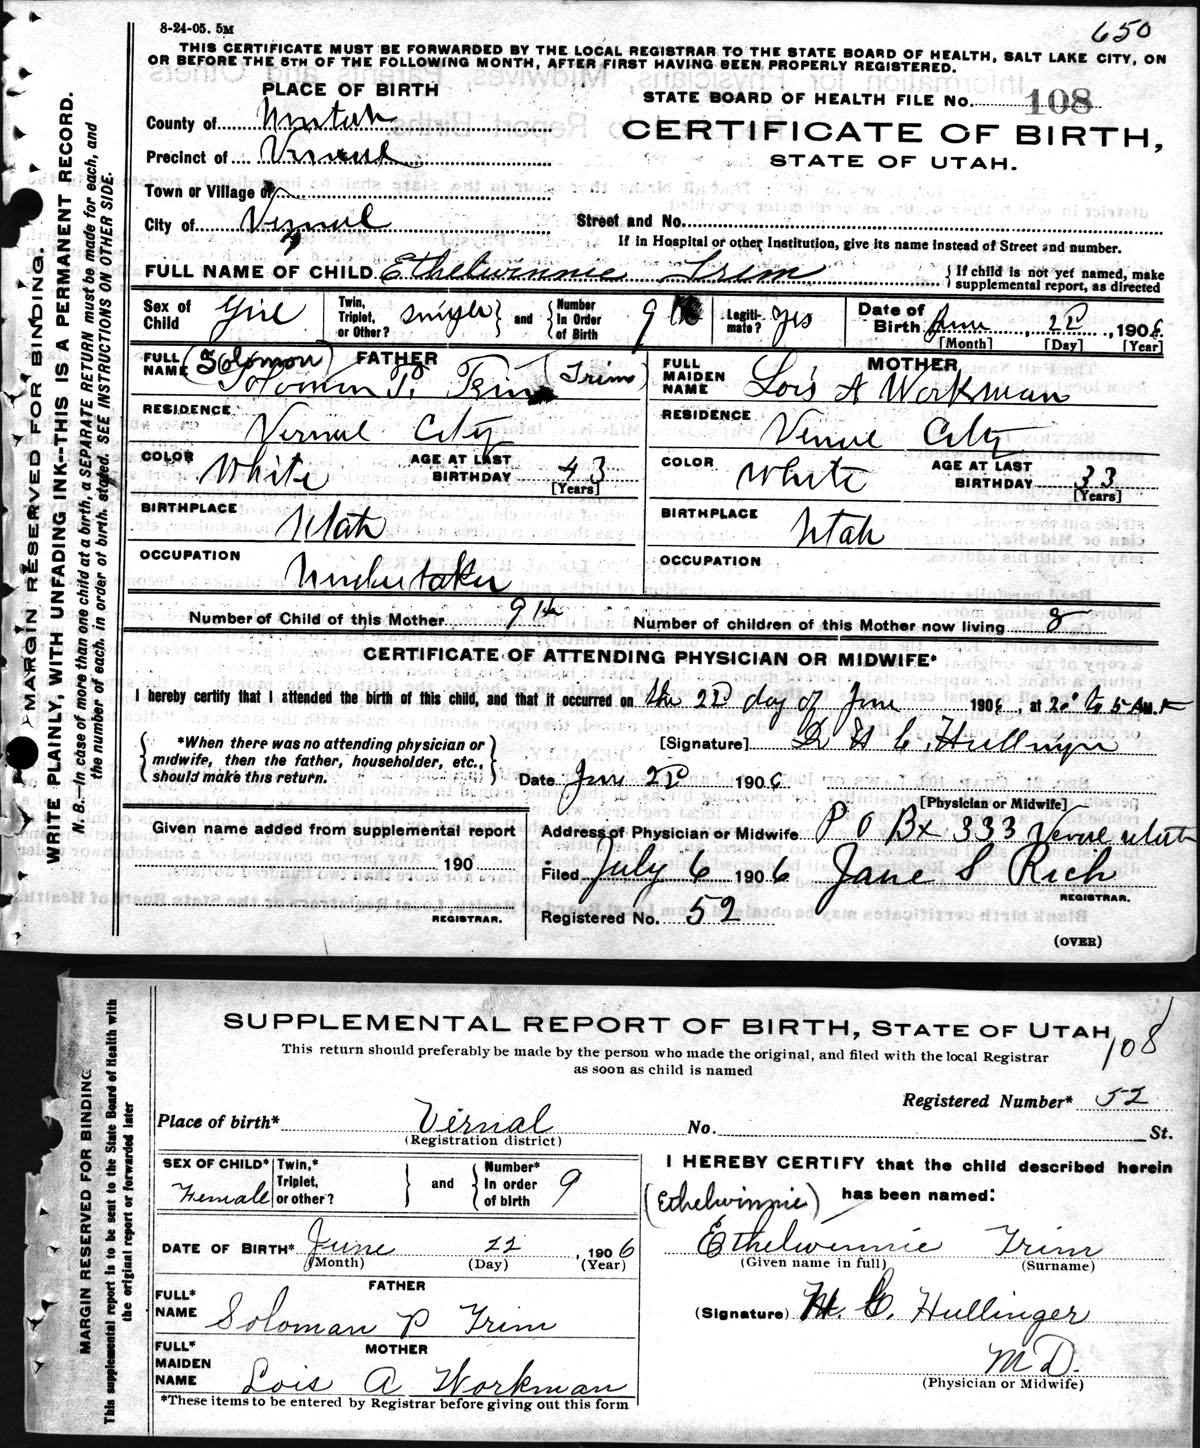 8-24-05. 5M
650
THIS CERTIFICATE MUST BE FORWARDED BY THE LOCAL REGISTRAR TO THE STATE BOARD OF HEALTH, SALT LAKE CITY, ON
OR BEFORE THE 5TH OF THE FOLLOWING MONTH, AFTER FIRST HAVING BEEN PROPERLY REGISTERED.
MARGIN RESERVED FOR BINDING.
WRITE PLAINLY, WITH UNFADING INK--THIS IS A PERMANENT RECORD.
N. B.--In case of more than one child at a birth, a SEPARATE RETURN must be made for each, and
the number of each, in order of birth, stated. SEE INSTRUCTIONS ON OTHER SIDE.
PLACE OF BIRTH
STATE BOARD OF HEALTH FILE No. 108
County of Uintah
CERTIFICATE OF BIRTH,
Precinct of Vernal
STATE OF UTAH.
Town or Village of
City of Vernal
Street and No.
If in Hospital or other Institution, give its name instead of Street and number.
FULL NAME OF CHILD Ethelwinnie Trim
If child is not yet named, make
supplemental report, as directed
Sex of Child Girl
Twin, Triplet, or Other? single and
Number In Order of Birth 9
Legitimate? yes
Date of Birth June, 22, 1906
[Month] [Day] [Year]
FATHER
FULL NAME (Solomon) Solomon P. Trim (Trim)
MOTHER
FULL MAIDEN NAME Lois A Workman
RESIDENCE Vernal City
RESIDENCE Vernal City
COLOR White AGE AT LAST BIRTHDAY 43 [Years]
COLOR White AGE AT LAST BIRTHDAY 33 [Years]
BIRTHPLACE Utah
BIRTHPLACE Utah
OCCUPATION Undertaker
OCCUPATION
Number of Child of this Mother 9th
Number of children of this Mother now living 8
CERTIFICATE OF ATTENDING PHYSICIAN OR MIDWIFE*
I hereby certify that I attended the birth of this child, and that it occurred on the 22 day of June 1906, at
*When there was no attending physician or
midwife, then the father, householder, etc.,
should make this return.
[Signature] Dr H C Hullinger
Date June 22 1906
[Physician or Midwife]
Given name added from supplemental report
190
REGISTRAR.
Address of Physician or Midwife P O Bx 333 Vernal Utah
Filed July 6 1906 Jane S Rich
REGISTRAR.
Registered No. 52
(OVER)
SUPPLEMENTAL REPORT OF BIRTH, STATE OF UTAH
108
This return should preferably be made by the person who made the original, and filed with the local Registrar
as soon as child is named
MARGIN RESERVED FOR BINDING
This supplemental report is to be sent to the State Board of Health with
the original report or forwarded later
Registered Number* 52
Place of birth* Vernal No. St.
(Registration district)
SEX OF CHILD* Female
Twin,* Triplet, or other? and
Number* In order of birth 9
I HEREBY CERTIFY that the child described herein
has been named:
(Ethelwinnie)
DATE OF BIRTH* June 22, 1906
(Month) (Day) (Year)
Ethelwinnie Trim
(Given name in full) (Surname)
FATHER
FULL* NAME Soloman P Trim
(Signature) H. C. Hullinger
M D.
(Physician or Midwife)
MOTHER
FULL* MAIDEN NAME Lois A Workman
*These items to be entered by Registrar before giving out this form